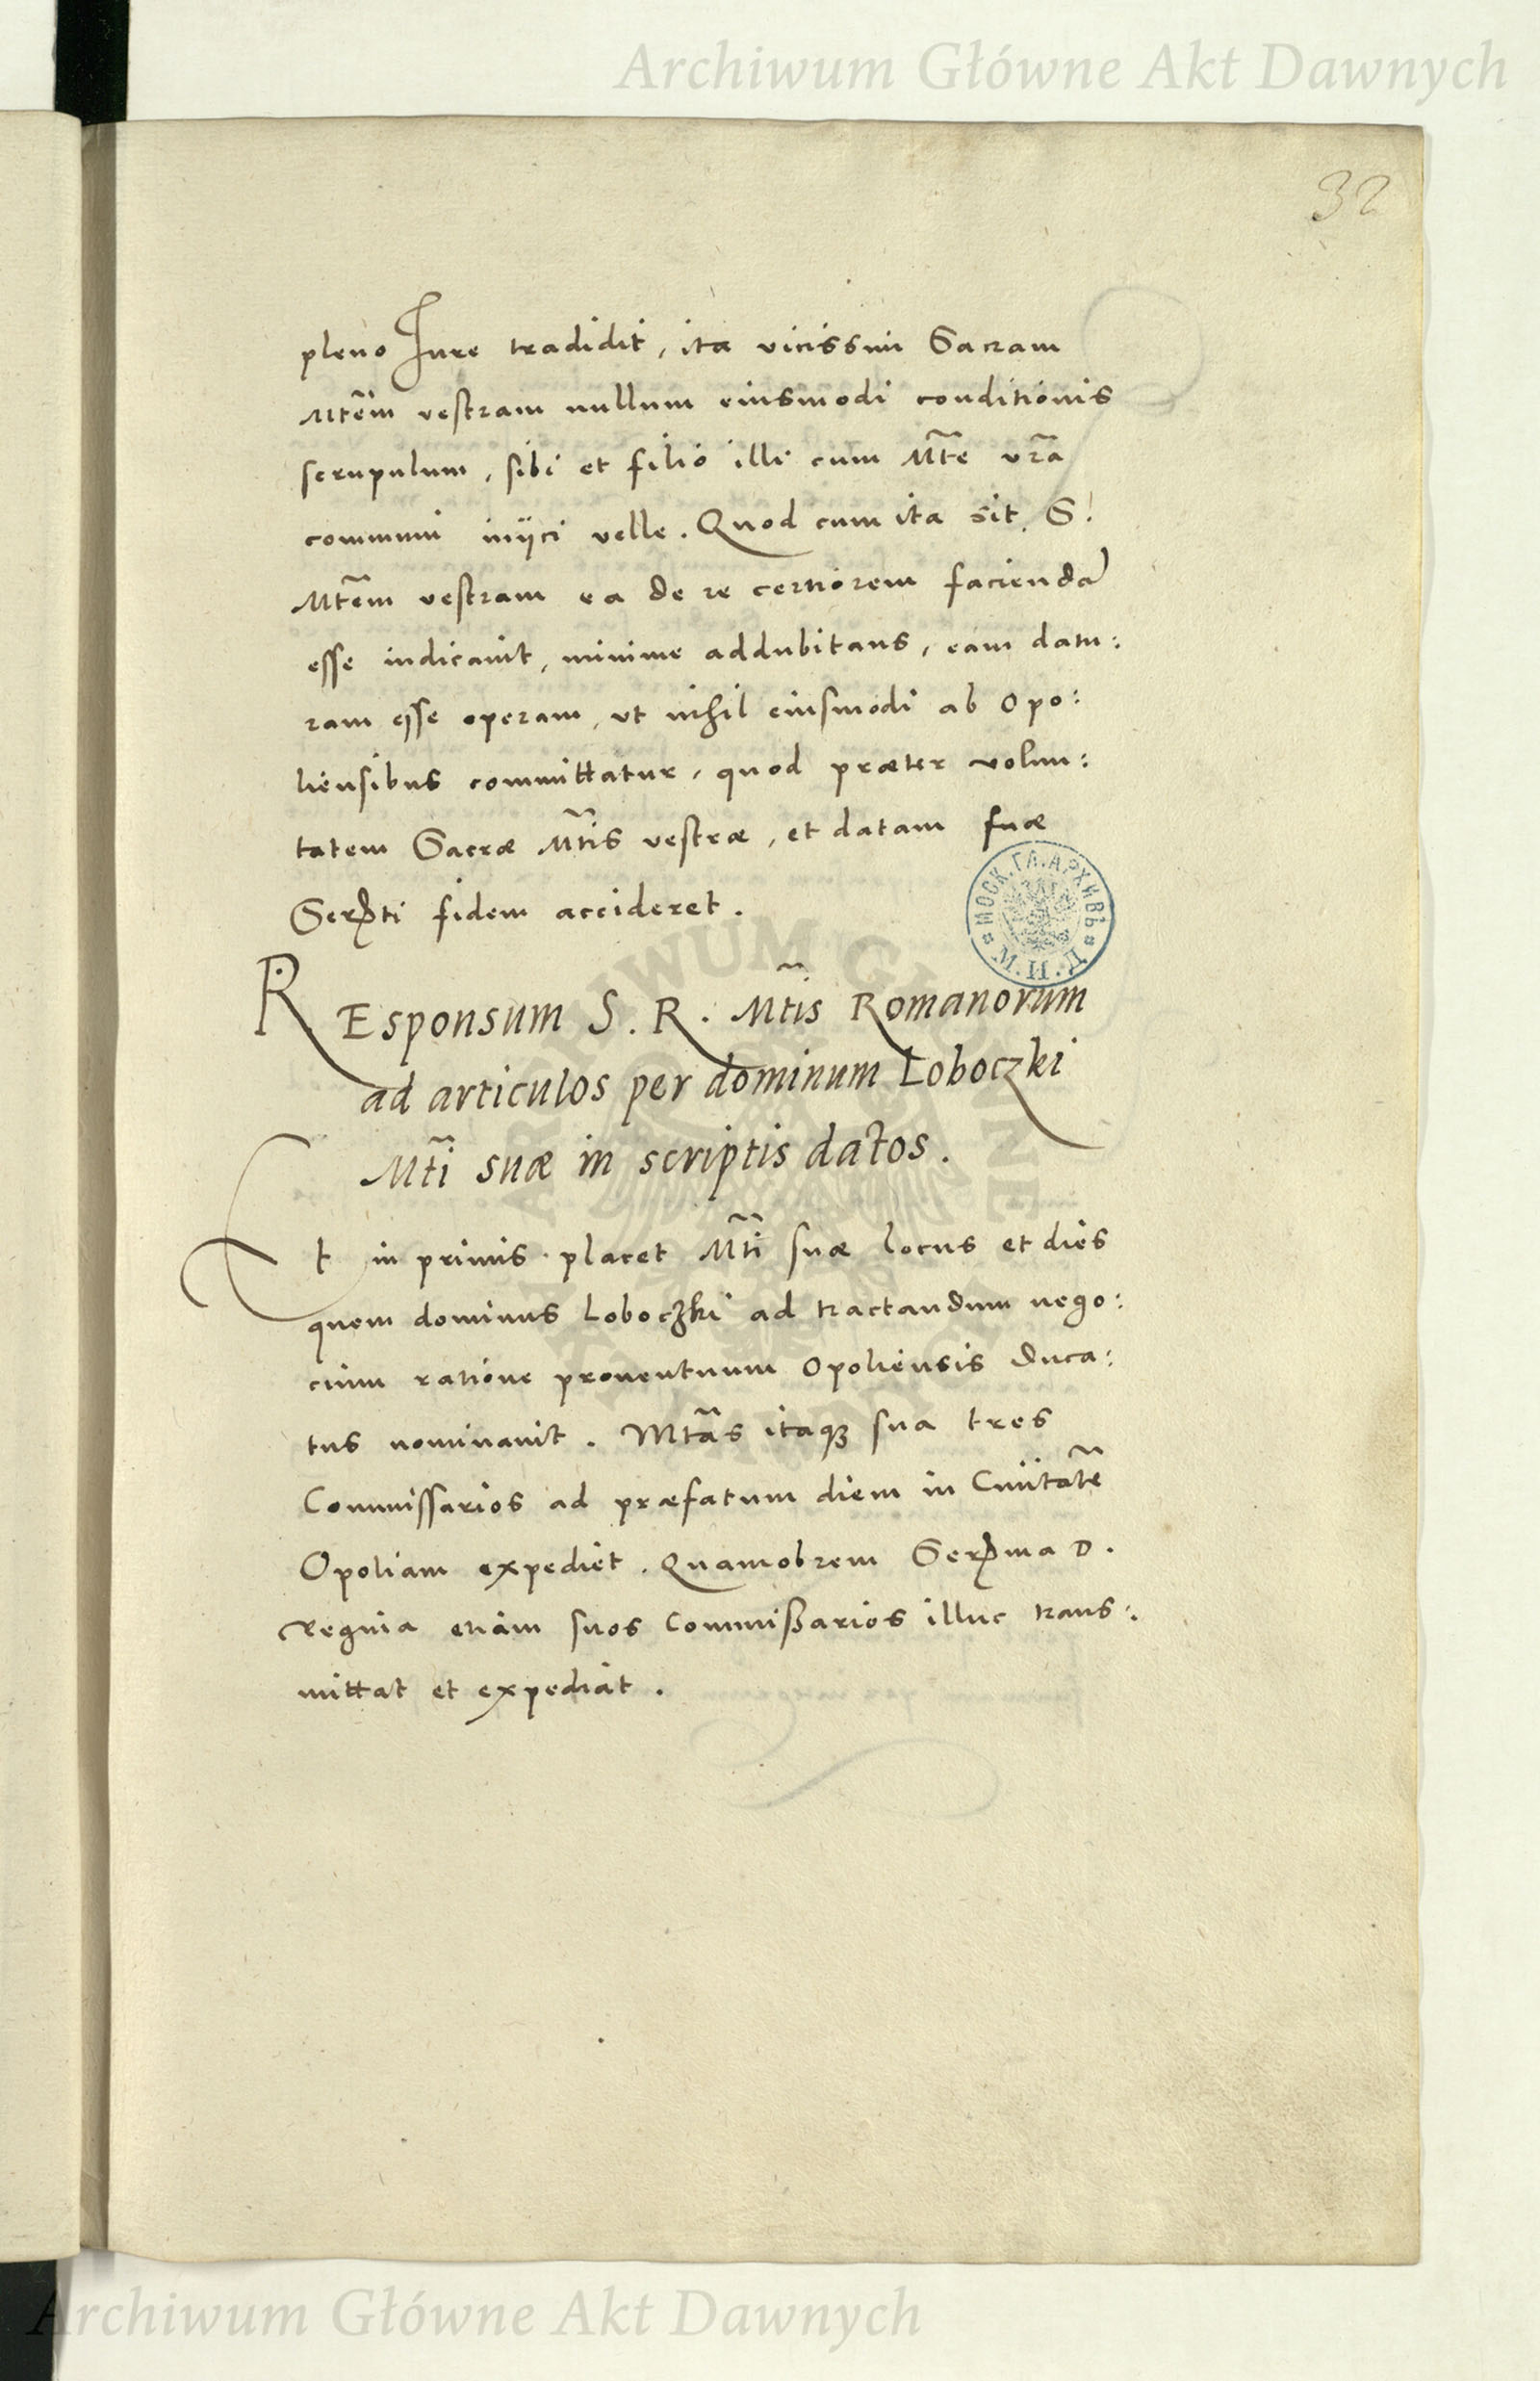 Archiwum Główne Akt Dawnych
32
pleno Iure tradidit, ita vicissim Sacram
Mtẽm vestram nullum eiusmodi conditionis
scrupulum, sibi et filio illi cum Mt̃e vrã
communi inijci velle. Quod cum ita sit, S.
Mtẽm vestram ea de re certiorem faciendã
esse iudicauit, minime addubitans, eam datu:
ram esse operam, vt nihil eiusmodi ab Opo:
liensibus committatur, quod præter volun:
tatem Sacræ Mt̃is vestræ, et datam suæ
Serẽti fidem accideret.
МОСК.ГЛ.АРХИВЪ М.И.Д.
REsponsum S. R. Mt̃is Romanorum
ad articulos per dominum Loboczki
Mt̃i suæ in scriptis datos.
Et in primis placet Mt̃i suæ locus et dies
quem dominus Loboczki ad tractandum nego:
cium ratione prouentuum Opoliensis Duca:
tus nominauit. Mtãs itaqꝫ sua tres
Commissarios ad præfatum diem in Ciuitatẽ
Opoliam expediet. Quamobrem Serẽma D.
Regina etiam suos Commißarios illuc trans:
mittat et expediat.
Archiwum Główne Akt Dawnych